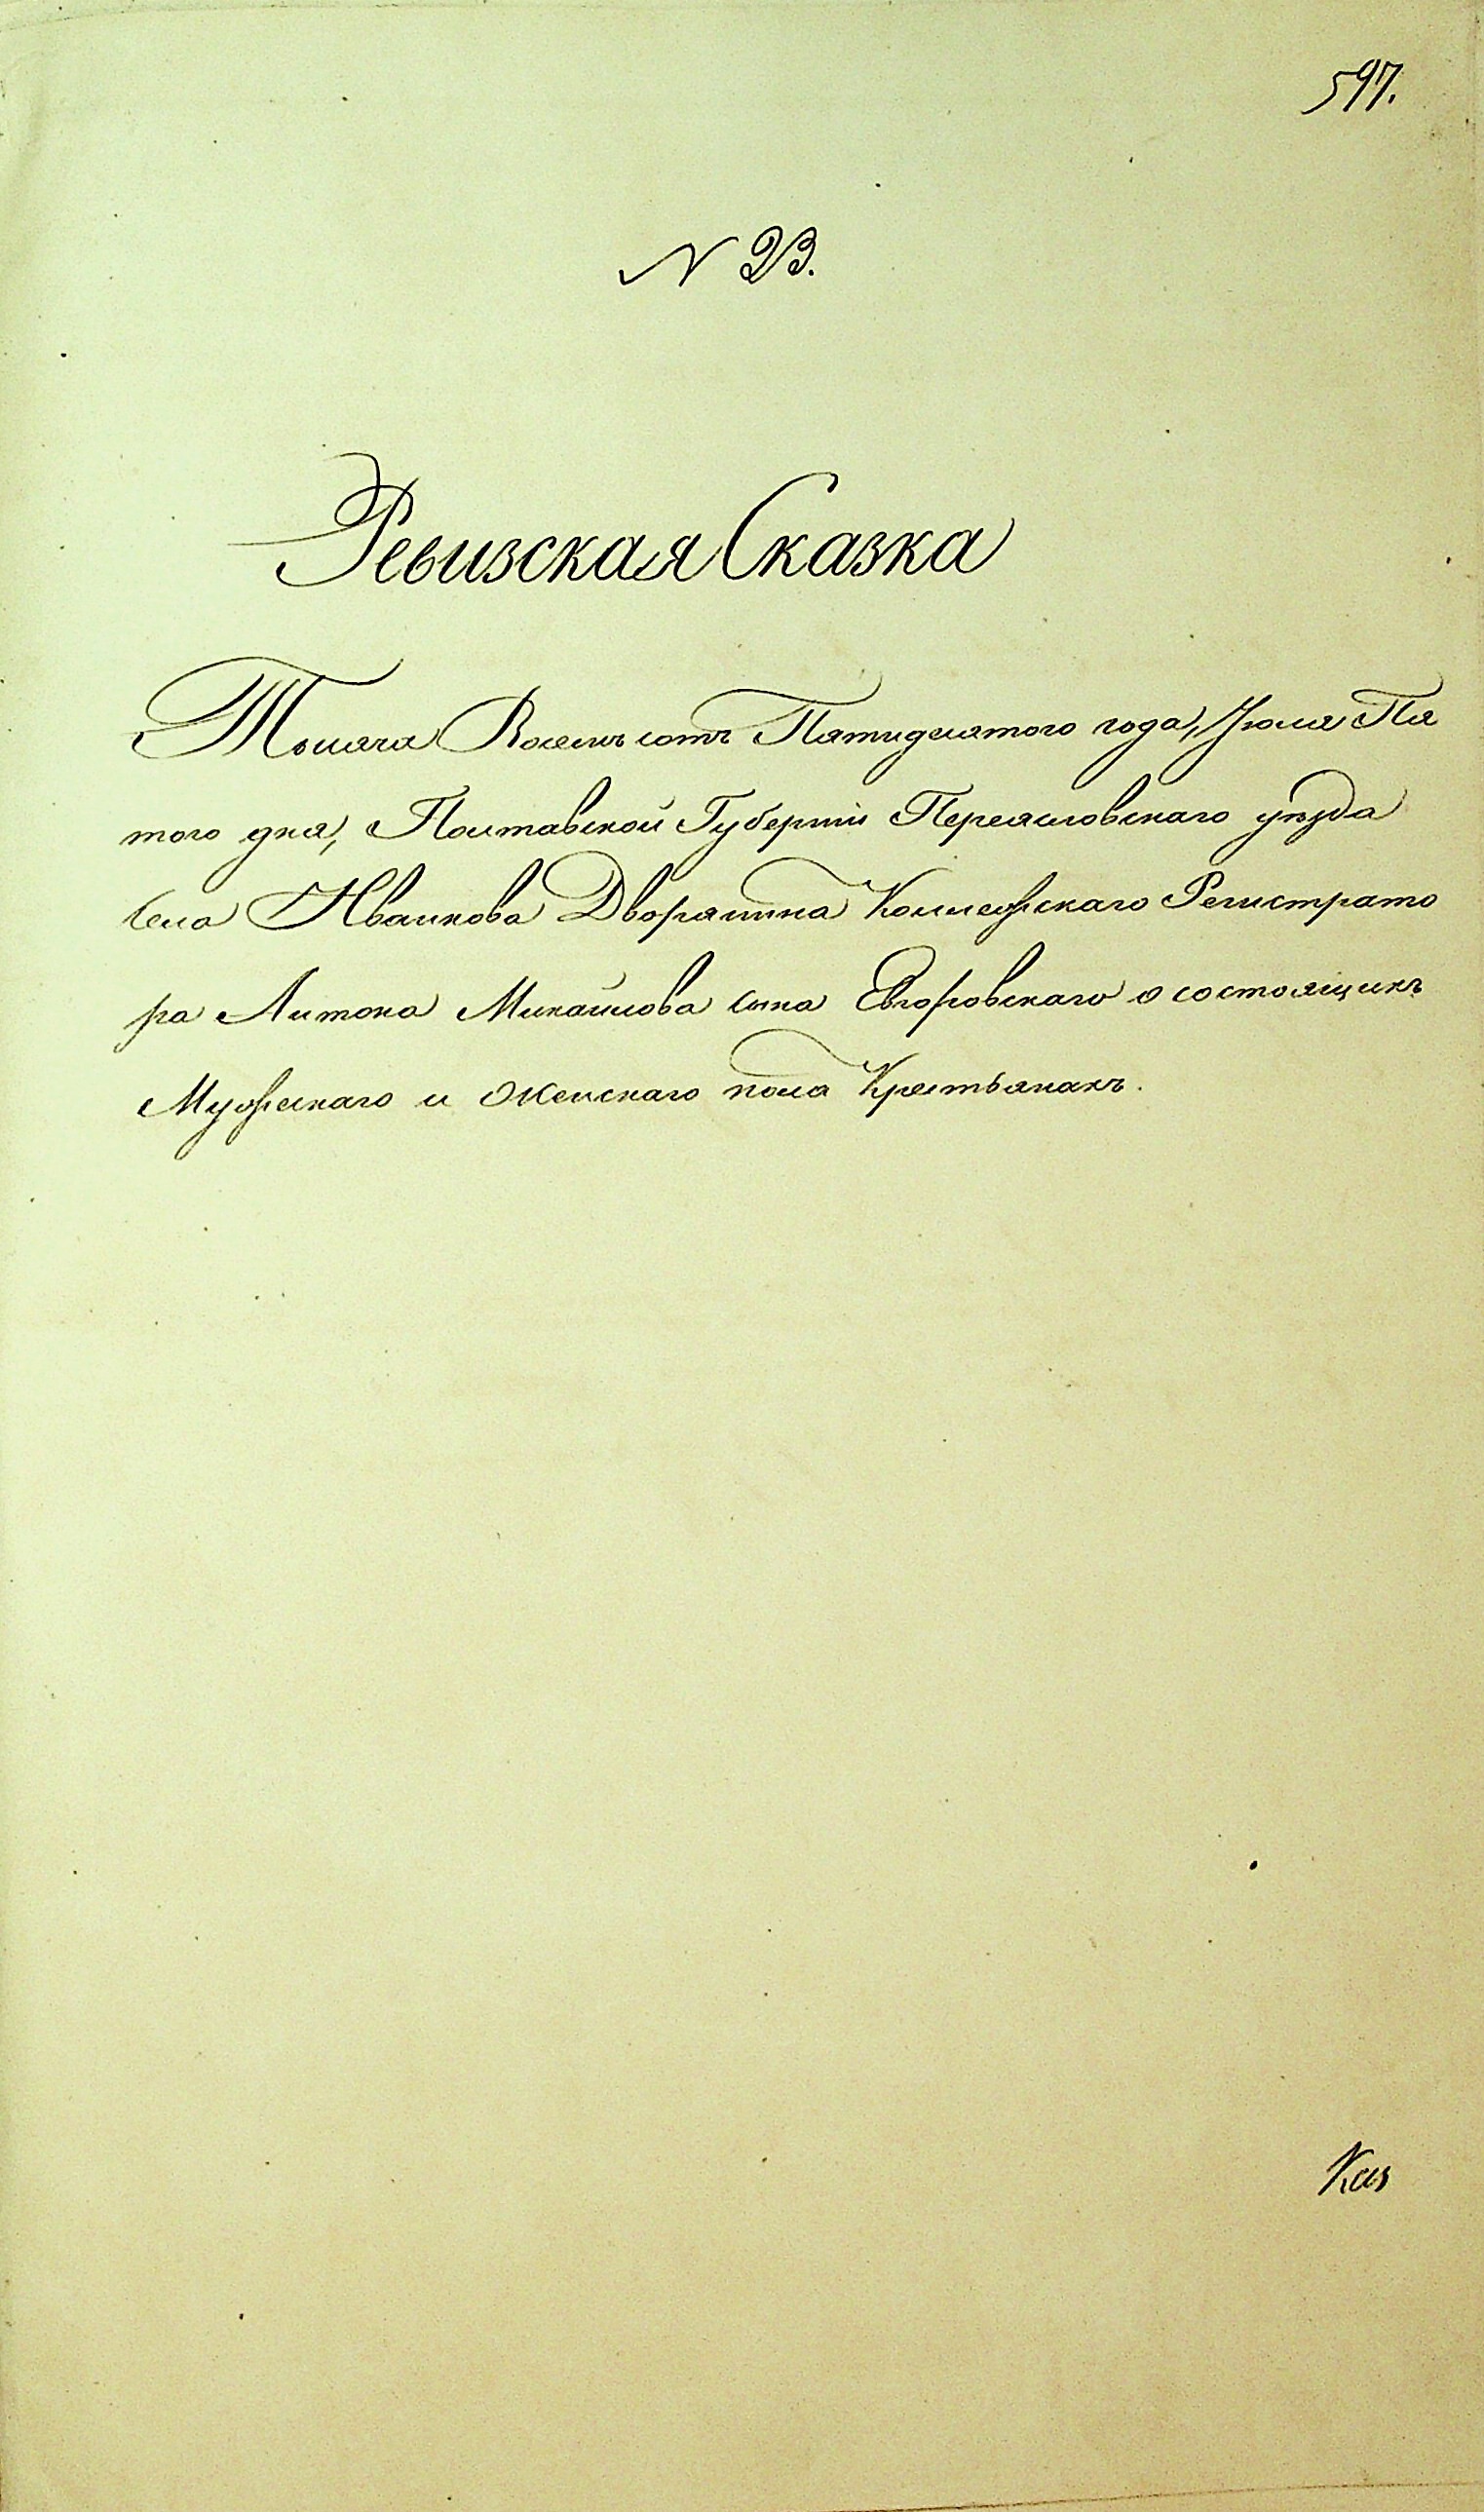 597.
N 23.
Ревизская Сказка
Тысяча Восемь сотъ Пятидесятого года, Июля Пя
того дня, Полтавской Губернии Переясловскаго уѣзда
Села Иванкова Дворянина Коллежскаго Регистрато
ра Антона Михайлова сына Евгоровскаго о состоящихъ
Мужескаго и Женскаго пола Крестьянахъ.